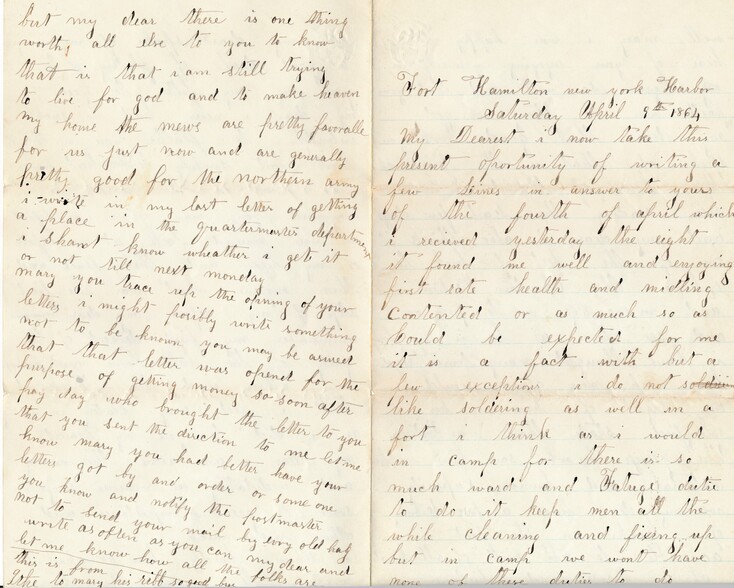 Fort Hamilton new york Harbor
Saturday April 9th 1864
My Dearest i now take this
present oportunity of writing a
few Lines in answer to yours
of the fourth of april which
i recieved yesterday the eight
it found me well and enjoying
first rate health and midling
Contented or as much so as
Could be expected for me
it is a fact with but a
few exceptions i do not
like soldering as well in a
fort i think as i would
in camp for there is so
much ward and Fatuge dutie
to do it keep men all the
while cleaning and fixing up
but in camp we wont have
none of these duties to do
but my dear there is one thing
worth, all else to you to know
that is that i am still trying
to live for god and to make heaven
my home the news are pretty favorable
for us just now and are generally
pretty good for the northern army
i write in my last letter of getting
a place in the quartermaster department
i shant know wheather i get it
or not till next monday
mary you trace up the opning of your
letters i might posibly write something
not to be known you may be asured
that that letter was opend for the
purpose of getting money so soon after
pay day who brought the letter to you
that you sent the direction to me let me
know mary you had better have your
letters got by and order or some one
you know and notify the postmaster
not to send your mail by evry old hag
write as often as you can my dear and
let me know how all the folks are
this is from
to mary his